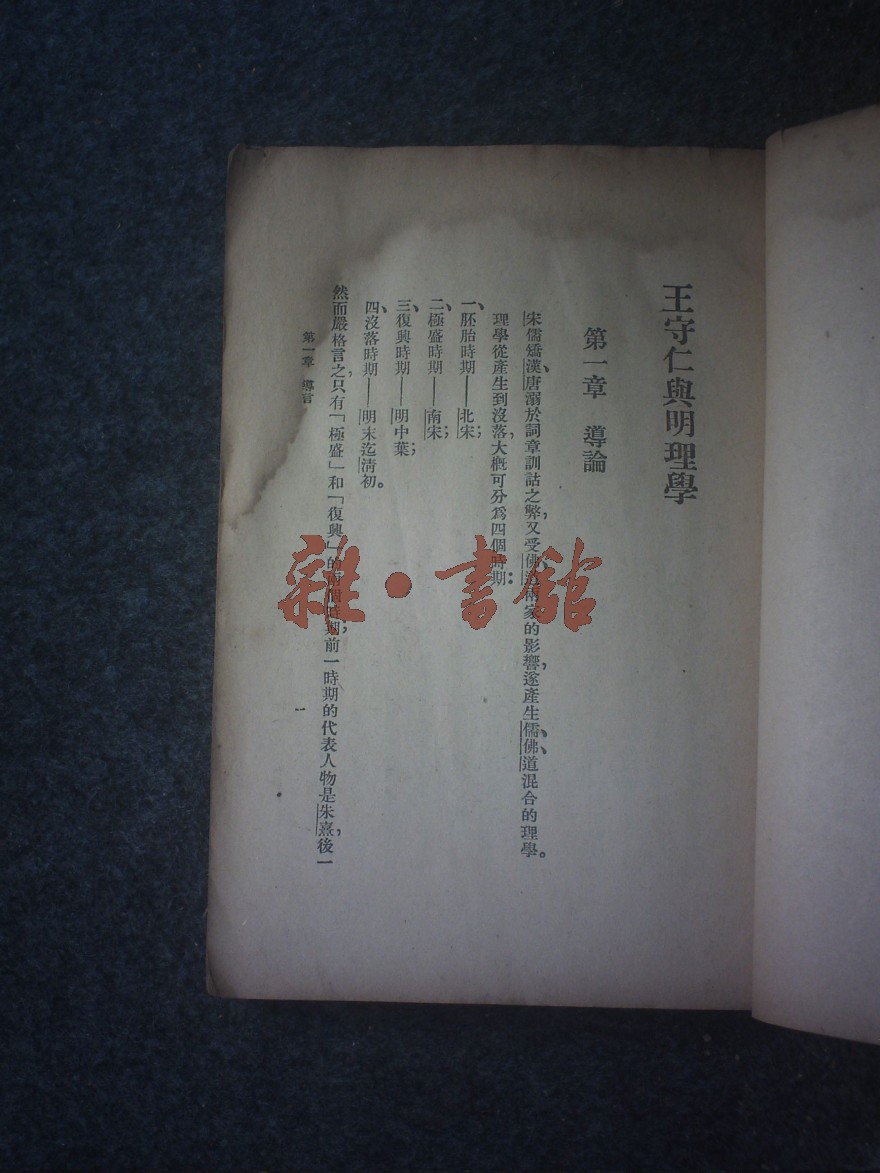 王守仁與明理學
第一章　導論
宋儒矯漢、唐溺於詞章訓詁之弊，又受佛、道兩家的影響，遂產生儒、佛、道混合的理學。
理學從產生到沒落，大概可分爲四個時期：
一、胚胎時期——北宋；
二、極盛時期——南宋；
三、復興時期——明中葉；
四、沒落時期——明末迄淸初。
然而嚴格言之，只有「極盛」和「復興」的兩個時期；前一時期的代表人物是朱熹，後一
第一章　導言
一
雜·書館